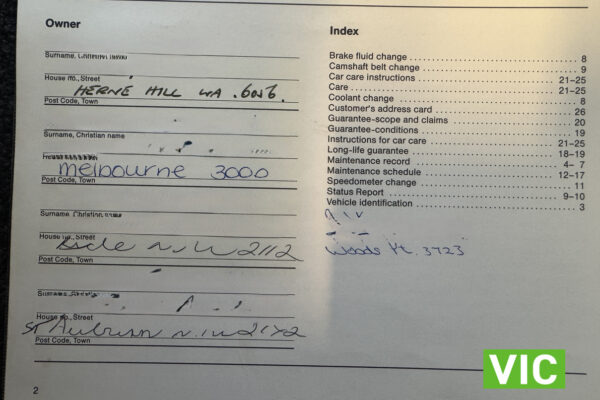 Owner
Surname, Christian name
House no., Street
HERNE HILL WA . 6056.
Post Code, Town
Surname, Christian name
House no., Street
melbourne 3000
Post Code, Town
Surname, Christian name
House no., Street
N.S.W 2112
Post Code, Town
Surname, Christian name
House no., Street
St
Post Code, Town
2
Index
Brake fluid change 8
Camshaft belt change 9
Car care instructions 21–25
Care 21–25
Coolant change 8
Customer's address card 26
Guarantee-scope and claims 20
Guarantee-conditions 19
Instructions for car care 21–25
Long-life guarantee 18–19
Maintenance record 4– 7
Maintenance schedule 12–17
Speedometer change 11
Status Report 9–10
Vehicle identification 3
Woods Pt. 3723
VIC